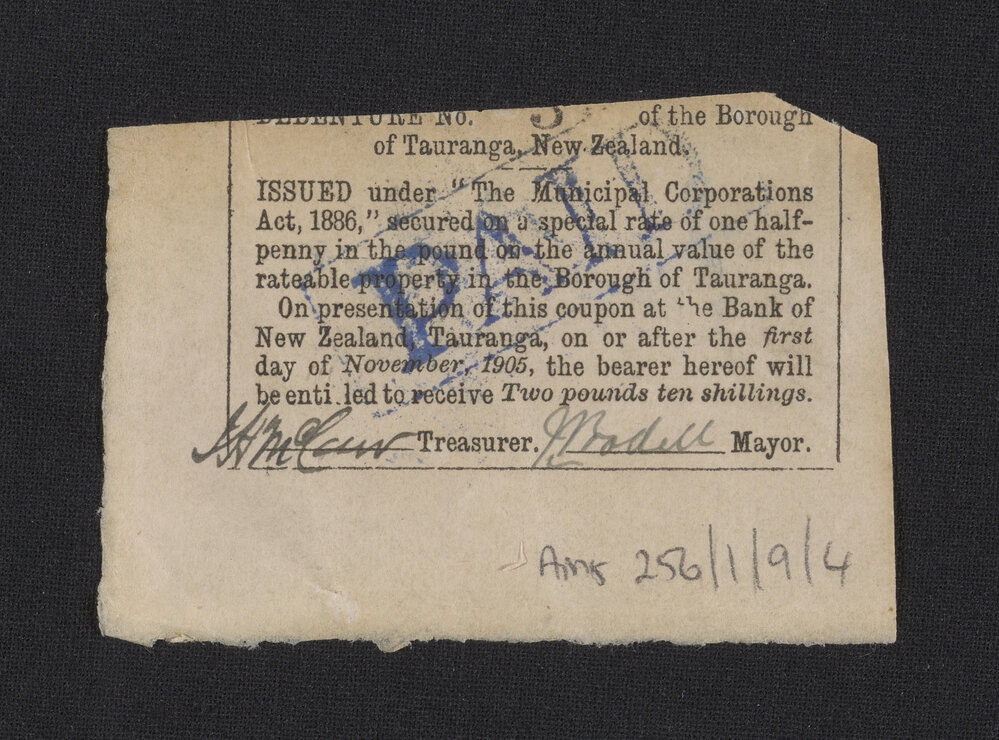 DEBENTURE No. 5 of the Borough
of Tauranga, New Zealand.
ISSUED under "The Municipal Corporations
Act, 1886," secured on a special rate of one half-
penny in the pound on the annual value of the
rateable property in the Borough of Tauranga.
On presentation of this coupon at the Bank of
New Zealand, Tauranga, on or after the first
day of November, 1905, the bearer hereof will
be enti led to receive Two pounds ten shillings.
Treasurer. J Bodell Mayor.
PAID
Ams 256/1/9/4